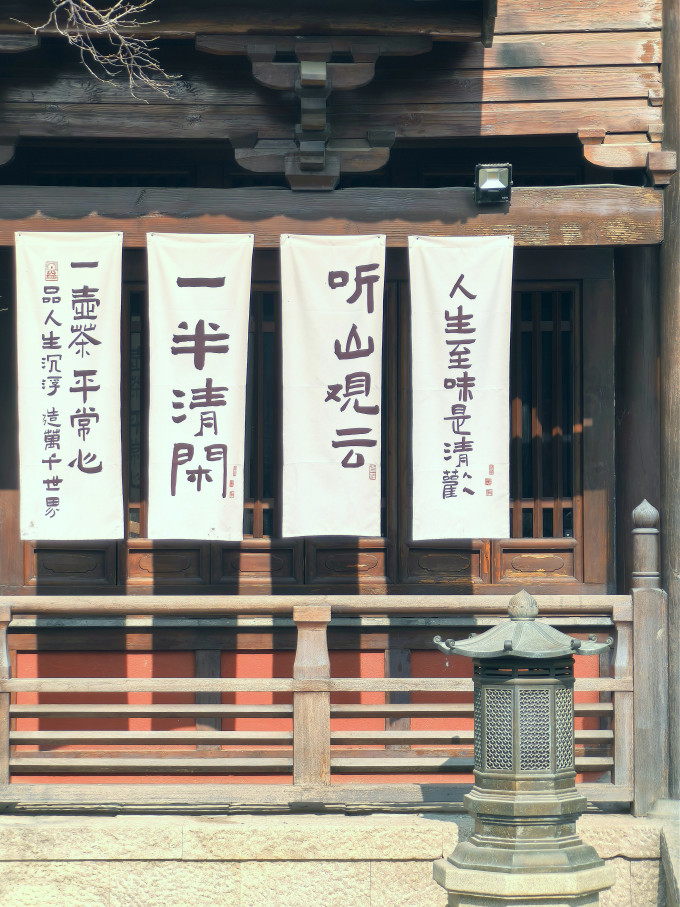 人生至味是清歡
听山观云
一半清閑
一壶茶 平常心
品人生沉浮 造萬千世界